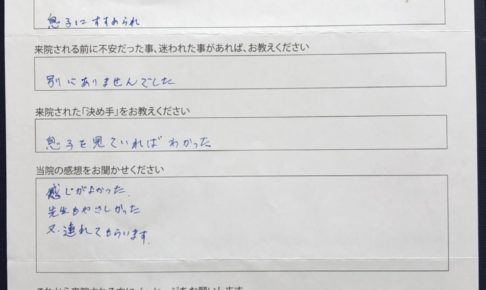 息子にすすめられ
来院される前に不安だった事、迷われた事があれば、お教えください
別にありませんでした
来院された「決め手」をお教えください
息子を見ていればわかった
当院の感想をお聞かせください
感じがよかった
先生もやさしかった
又、連れてもらいます。